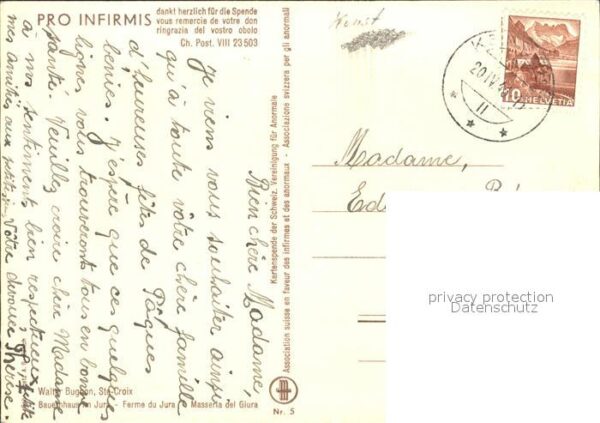 PRO INFIRMIS
dankt herzlich für die Spende
vous remercie de votre don
ringrazia del vostro obolo
Ch. Post. VIII 23503
Bien chère Madame,
Je viens vous souhaiter ainsi
qu'à toute votre chère famille
d'heureuses fêtes de Pâques
bénies. J'espère que ces quelques
lignes vous trouveront tous en bonne
santé. Veuillez croire chère Madame
à nos sentiments bien respectueux,
mes amitiés aux petits. Votre dévouée Thérèse.
Walter Bugnon, Ste-Croix
Bauernhaus im Jura - Ferme du Jura - Masseria del Giura
Kartenspende der Schweiz. Vereinigung für Anormale
Association suisse en faveur des infirmes et des anormaux - Associazione svizzera per gli anormali
Nr. 5
20.IV
II
10
HELVETIA
Madame,
privacy protection
Datenschutz